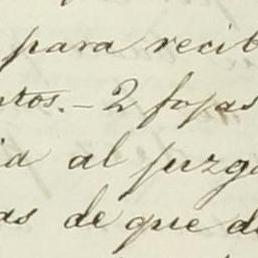 para recib
ntos. - 2 fojas
ia al juzga
as de que de